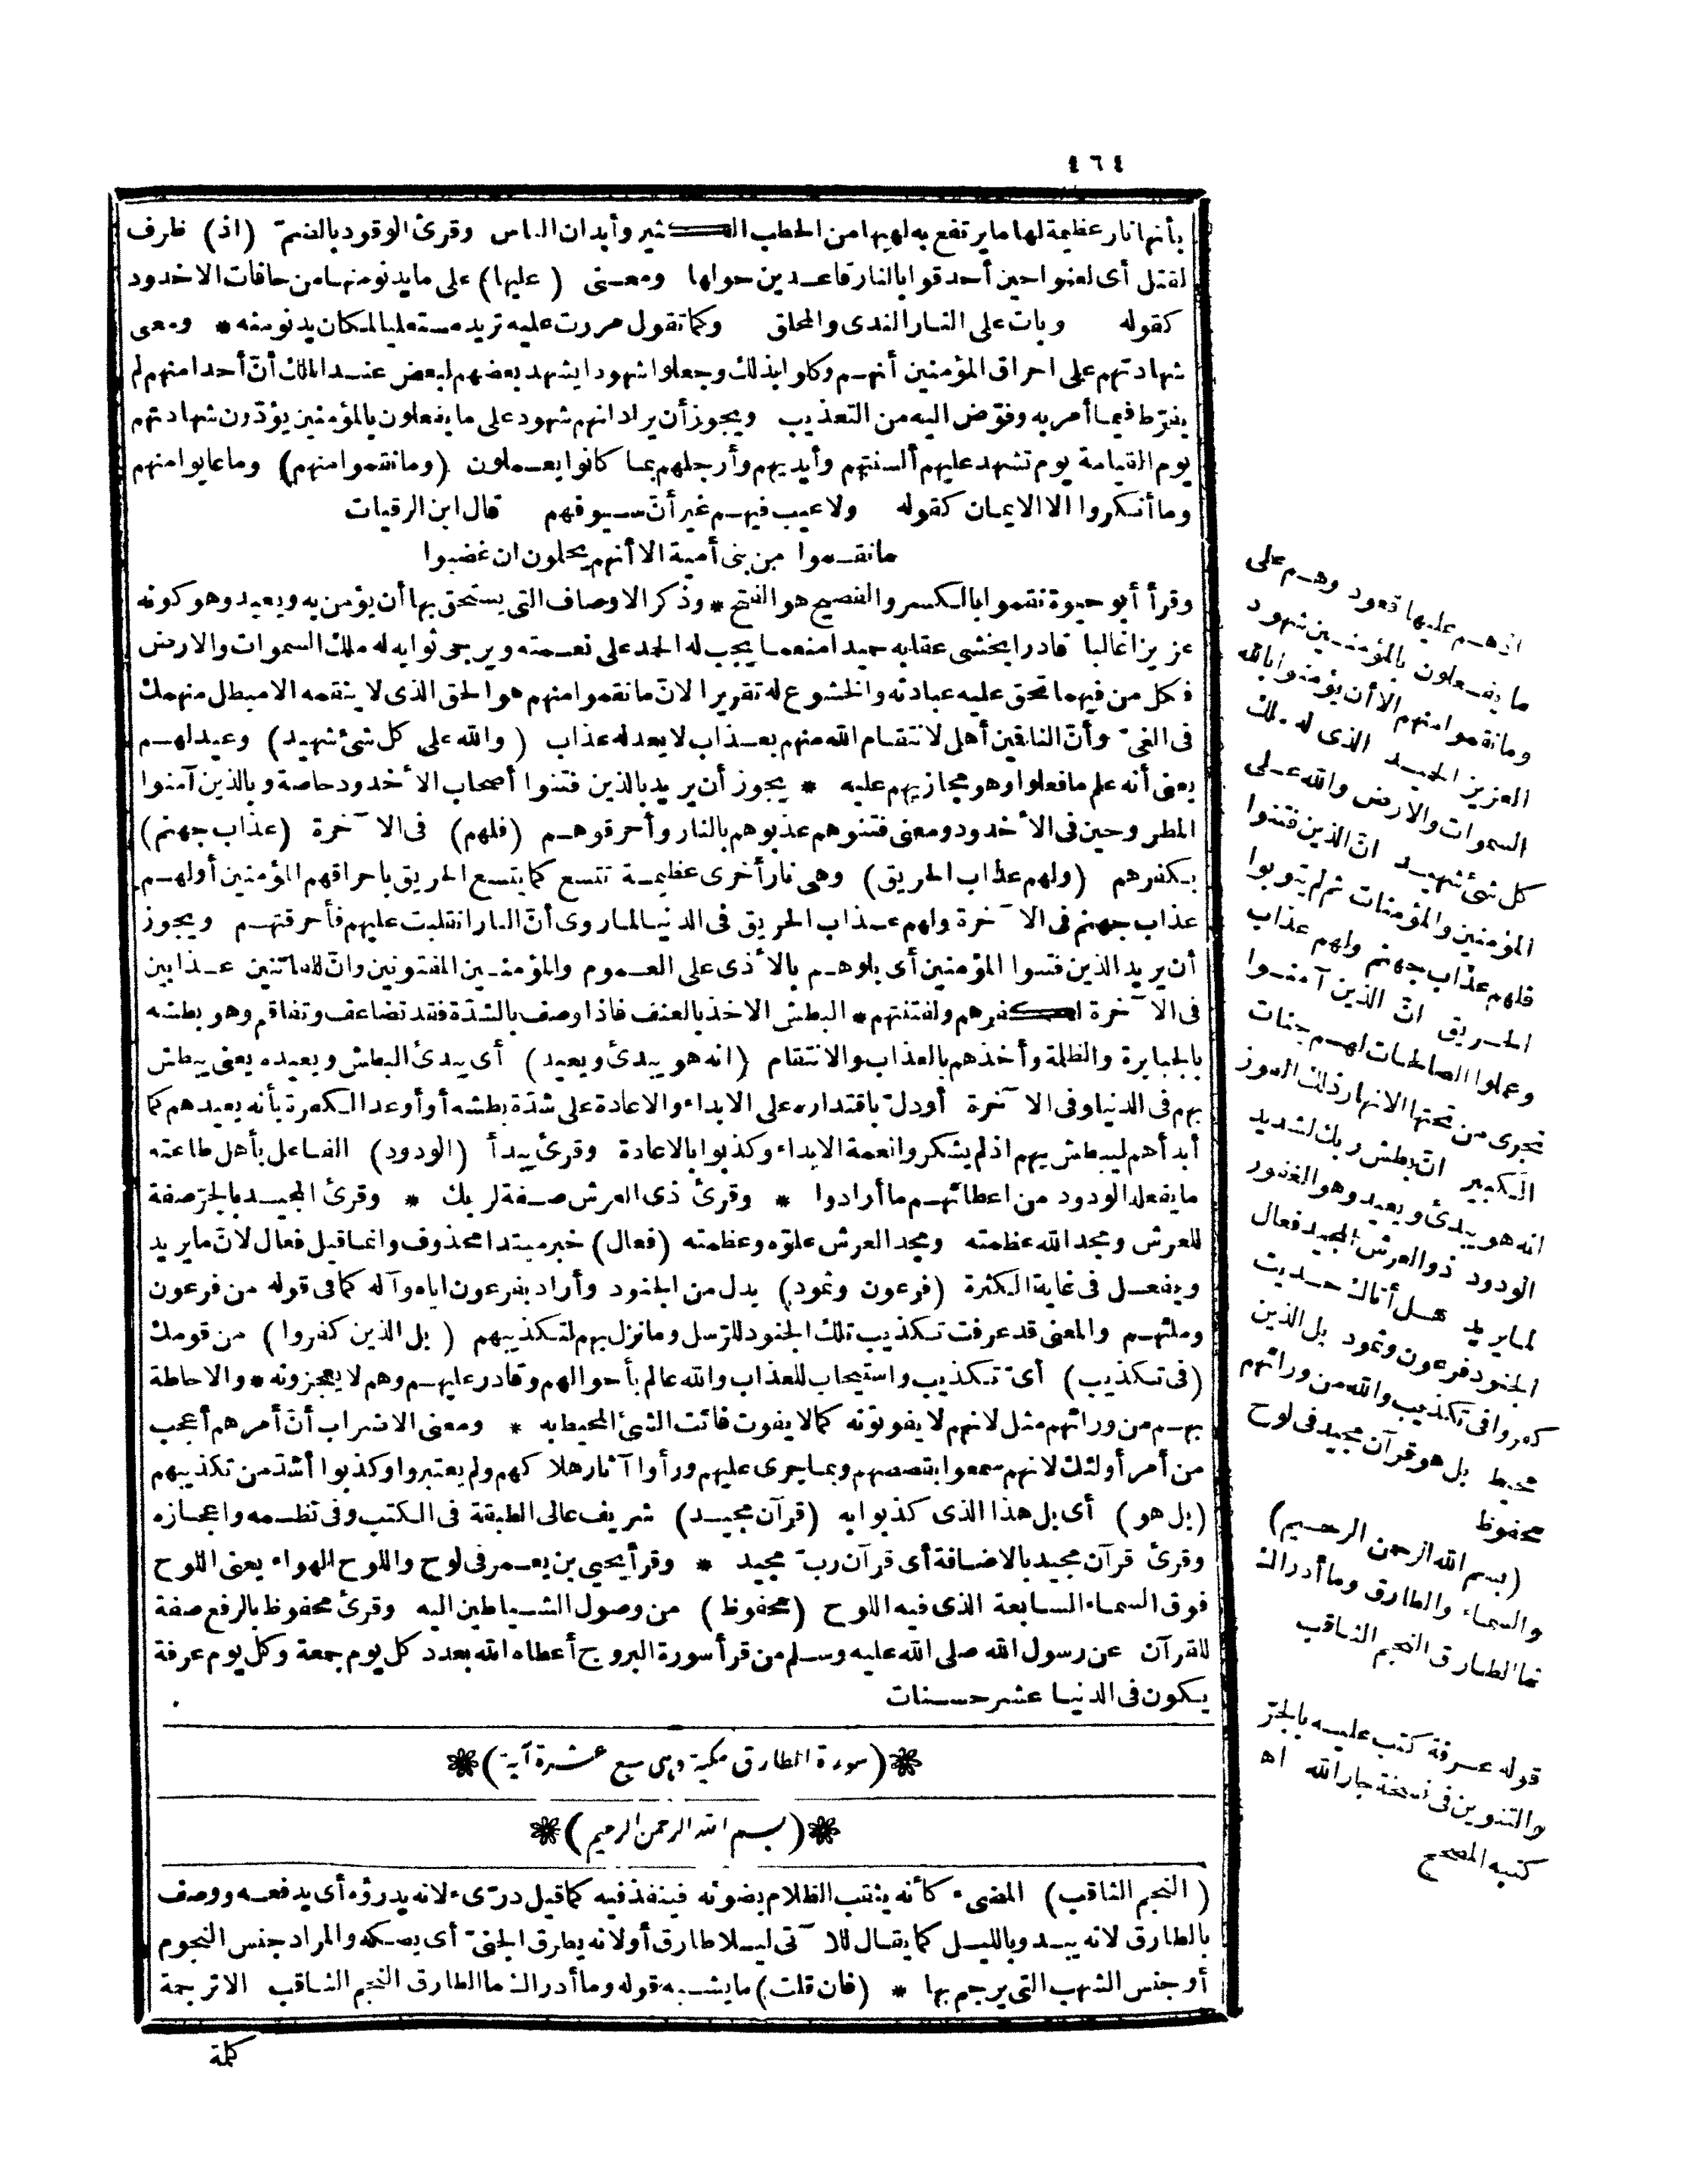 ٤٦٤
بأنها نار عظيمة لها ما يرتفع به لهبها من الحطب الكثير وأبدان الناس وقرئ الوقود بالضمّ (اذ) ظرف
لقتل أى لعنوا حين أحدقوا بالنار قاعدين حولها ومعنى (عليها) على ما يدنو منها من حافات الاخدود
كقوله وبات على النار الندى والمحلق وكما تقول مررت عليه تريد مستعليا لمكان يدنو منه * ومعنى
شهادتهم على احراق المؤمنين أنهم وكلوا بذلك وجعلوا شهودا يشهد بعضهم لبعض عند الملك أنّ أحدا منهم لم
يفرّط فيما أمر به وفوّض اليه من التعذيب ويجوز أن يراد انهم شهود على ما يفعلون بالمؤمنين يؤدّون شهادتهم
يوم القيامة يوم تشهد عليهم ألسنتهم وأيديهم وأرجلهم بما كانوا يعملون (وما نقموا منهم) وما عابوا منهم
وما أنكروا الا الايمان كقوله ولا عيب فيهم غير أنّ سيوفهم قال ابن الرقيات
ما نقموا من بنى أمية الا أنهم يحلمون ان غضبوا
وقرأ أبو حيوة نقموا بالكسر والفصيح هو الفتح * وذكر الاوصاف التى يستحق بها أن يؤمن به ويعبد وهو كونه
عزيزا غالبا قادرا يخشى عقابه حميدا منعما يجب له الحمد على نعمته ويرجى ثوابه له ملك السموات والارض
فكل من فيهما تحق عليه عبادته والخشوع له تقريرا لانّ ما نقموا منهم هو الحق الذى لا ينقمه الا مبطل منهمك
فى الغىّ وأنّ الناقمين أهل لانتقام الله منهم بعذاب لا يعدله عذاب (والله على كل شئ شهيد) وعيد لهم
يعنى أنه علم ما فعلوا وهو مجازيهم عليه * يجوز أن يريد بالذين فتنوا أصحاب الأخدود خاصة وبالذين آمنوا
المطروحين فى الأخدود ومعنى فتنوهم عذبوهم بالنار وأحرقوهم (فلهم) فى الآخرة (عذاب جهنم)
بكفرهم (ولهم عذاب الحريق) وهى نار أخرى عظيمة تتسع كما يتسع الحريق باحراقهم المؤمنين أولهم
عذاب جهنم فى الآخرة ولهم عذاب الحريق فى الدنيا لما روى أنّ النار انقلبت عليهم فأحرقتهم ويجوز
أن يريد الذين فتنوا المؤمنين أى بلوهم بالأذى على العموم والمؤمنين المفتونين وانّ للفاتنين عذابين
فى الآخرة لكفرهم ولفتنتهم * البطش الاخذ بالعنف فاذا وصف بالشدّة فقد تضاعف وتفاقم وهو بطشه
بالجبابرة والظلمة وأخذهم بالعذاب والانتقام (انه هو يبدئ ويعيد) أى يبدئ البطش ويعيده يعنى يبطش
بهم فى الدنيا وفى الآخرة أو دلّ باقتداره على الابداء والاعادة على شدّة بطشه أو أوعد الكفرة بأنه يعيدهم كما
أبدأهم ليبطش بهم اذ لم يشكروا نعمة الابداء وكذبوا بالاعادة وقرئ يبدأ (الودود) الفاعل بأهل طاعته
ما يفعله الودود من اعطائهم ما أرادوا * وقرئ ذى العرش صفة لربك * وقرئ المجيد بالجرّ صفة
للعرش ومجد الله عظمته ومجد العرش علوّه وعظمته (فعال) خبر مبتدا محذوف وانما قيل فعال لانّ ما يريد
ويفعل فى غاية الكثرة (فرعون وثمود) بدل من الجنود وأراد بفرعون اياه وآله كما فى قوله من فرعون
وملئهم والمعنى قد عرفت تكذيب تلك الجنود للرّسل وما نزل بهم لتكذيبهم (بل الذين كفروا) من قومك
(فى تكذيب) أىّ تكذيب واستيجاب للعذاب والله عالم بأحوالهم وقادر عليهم وهم لا يعجزونه * والاحاطة
بهم من ورائهم مثل لانهم لا يفوتونه كما لا يفوت فائت الشئ المحيط به * ومعنى الاضراب أنّ أمرهم أعجب
من أمر أولئك لانهم سمعوا بقصصهم وبما جرى عليهم ورأوا آثار هلاكهم ولم يعتبروا وكذبوا أشدّ من تكذيبهم
(بل هو) أى بل هذا الذى كذبوا به (قرآن مجيد) شريف عالى الطبقة فى الكتب وفى نظمه واعجازه
وقرئ قرآن مجيد بالاضافة أى قرآن ربّ مجيد * وقرأ يحيى بن يعمر فى لوح واللوح الهواء يعنى اللوح
فوق السماء السابعة الذى فيه اللوح (محفوظ) من وصول الشياطين اليه وقرئ محفوظ بالرفع صفة
للقرآن عن رسول الله صلى الله عليه وسلم من قرأ سورة البروج أعطاه الله بعدد كل يوم جمعة وكل يوم عرفة
يكون فى الدنيا عشر حسنات
(سورة الطارق مكية وهى سبع عشرة آية)
(بسم الله الرحمن الرحيم)
(النجم الثاقب) المضىء كأنه يثقب الظلام بضوئه فينفذ فيه كما قيل درّىء لانه يدرؤه أى يدفعه ووصف
بالطارق لانه يبدو بالليل كما يقال للآتى ليلا طارق أو لانه يطرق الجنىّ أى يصكه والمراد جنس النجوم
أو جنس الشهب التى يرجم بها * (فان قلت) ما يشبه قوله وما أدراك ما الطارق النجم الثاقب الا ترجمة
كلمة
اذ هم عليها قعود وهم على
ما يفعلون بالمؤمنين شهود
وما نقموا منهم الا أن يؤمنوا بالله
العزيز الحميد الذى له ملك
السموات والارض والله على
كل شئ شهيد انّ الذين فتنوا
المؤمنين والمؤمنات ثم لم يتوبوا
فلهم عذاب جهنم ولهم عذاب
الحريق انّ الذين آمنوا
وعملوا الصالحات لهم جنات
تجرى من تحتها الانهار ذلك الفوز
الكبير انّ بطش ربك لشديد
انه هو يبدئ ويعيد وهو الغفور
الودود ذو العرش المجيد فعال
لما يريد هل أتاك حديث
الجنود فرعون وثمود بل الذين
كفروا فى تكذيب والله من ورائهم
محيط بل هو قرآن مجيد فى لوح
محفوظ
(بسم الله الرحمن الرحيم)
والسماء والطارق وما أدراك
ما الطارق النجم الثاقب
قوله عرفة كتب عليه بالجرّ
والتنوين فى نسخة جار الله اه
كتبه المصحح